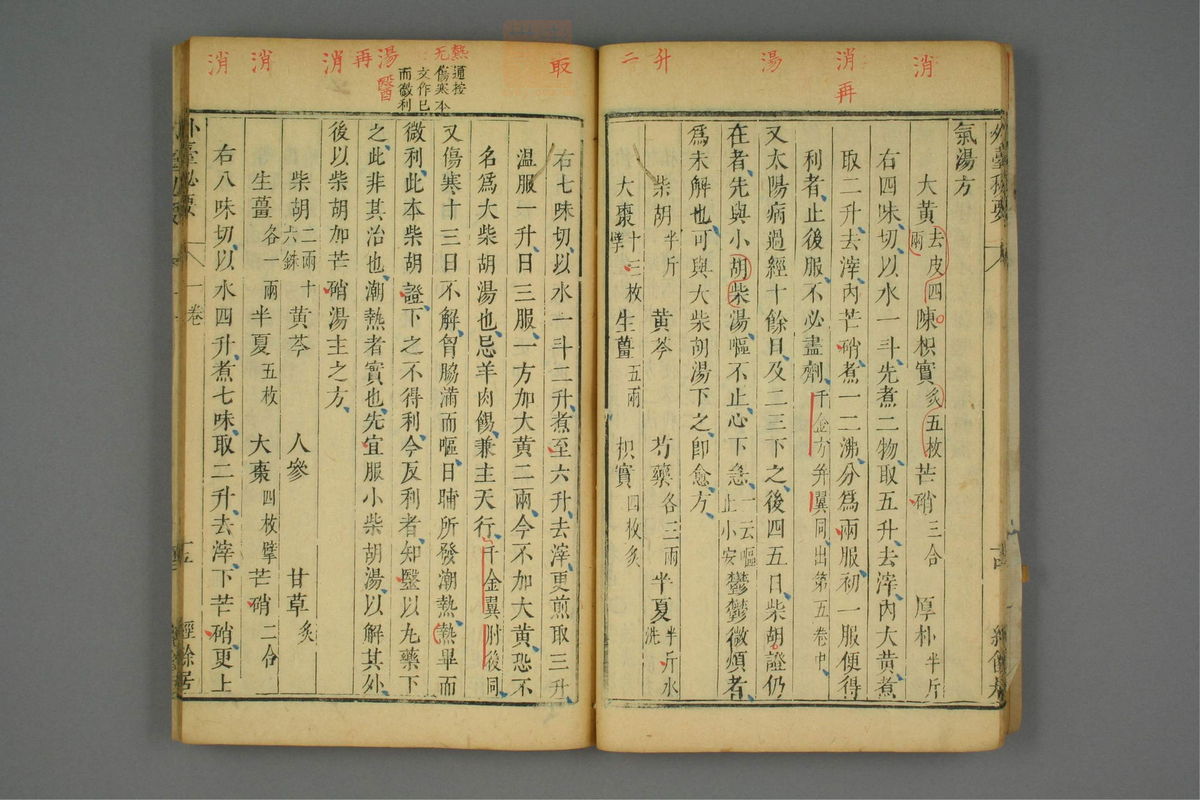 消
消
再
湯
升
二
外臺秘要
氣湯方
大黃去皮四兩 陳枳實炙五枚 芒硝三合 厚朴半斤
右四味切以水一斗先煮二物取五升去滓內大黃煮
取二升去滓內芒硝煮一二沸分爲兩服初一服便得
利者止後服不必盡劑千金方并翼同出第五卷中
又太陽病過經十餘日及二三下之後四五日柴胡證仍
在者先與小胡柴湯嘔不止心下急一云嘔止小安鬱鬱微煩者
爲未解也可與大柴胡湯下之卽愈方
柴胡半斤 黃芩 芍藥各三兩 半夏半斤水洗
大棗十三枚擘 生薑五兩 枳實四枚炙
取
熱
无
湯
醫
再
消
消
消
通按
傷寒本
文作已
而微利
右七味切以水一斗二升煮至六升去滓更煎取三升
溫服一升日三服一方加大黃二兩今不加大黃恐不
名爲大柴胡湯也忌羊肉餳兼主天行千金翼肘後同
又傷寒十三日不解胷脇滿而嘔日晡所發潮熱熱畢而
微利此本柴胡證下之不得利今反利者知醫以丸藥下
之此非其治也潮熱者實也先宜服小柴胡湯以解其外
後以柴胡加芒硝湯主之方
柴胡二兩十六銖 黃芩 人參 甘草炙
生薑各一兩 半夏五枚 大棗四枚擘 芒硝二合
右八味切以水四升煮七味取二升去滓下芒硝更上
外臺秘要 一卷 十五 經餘居